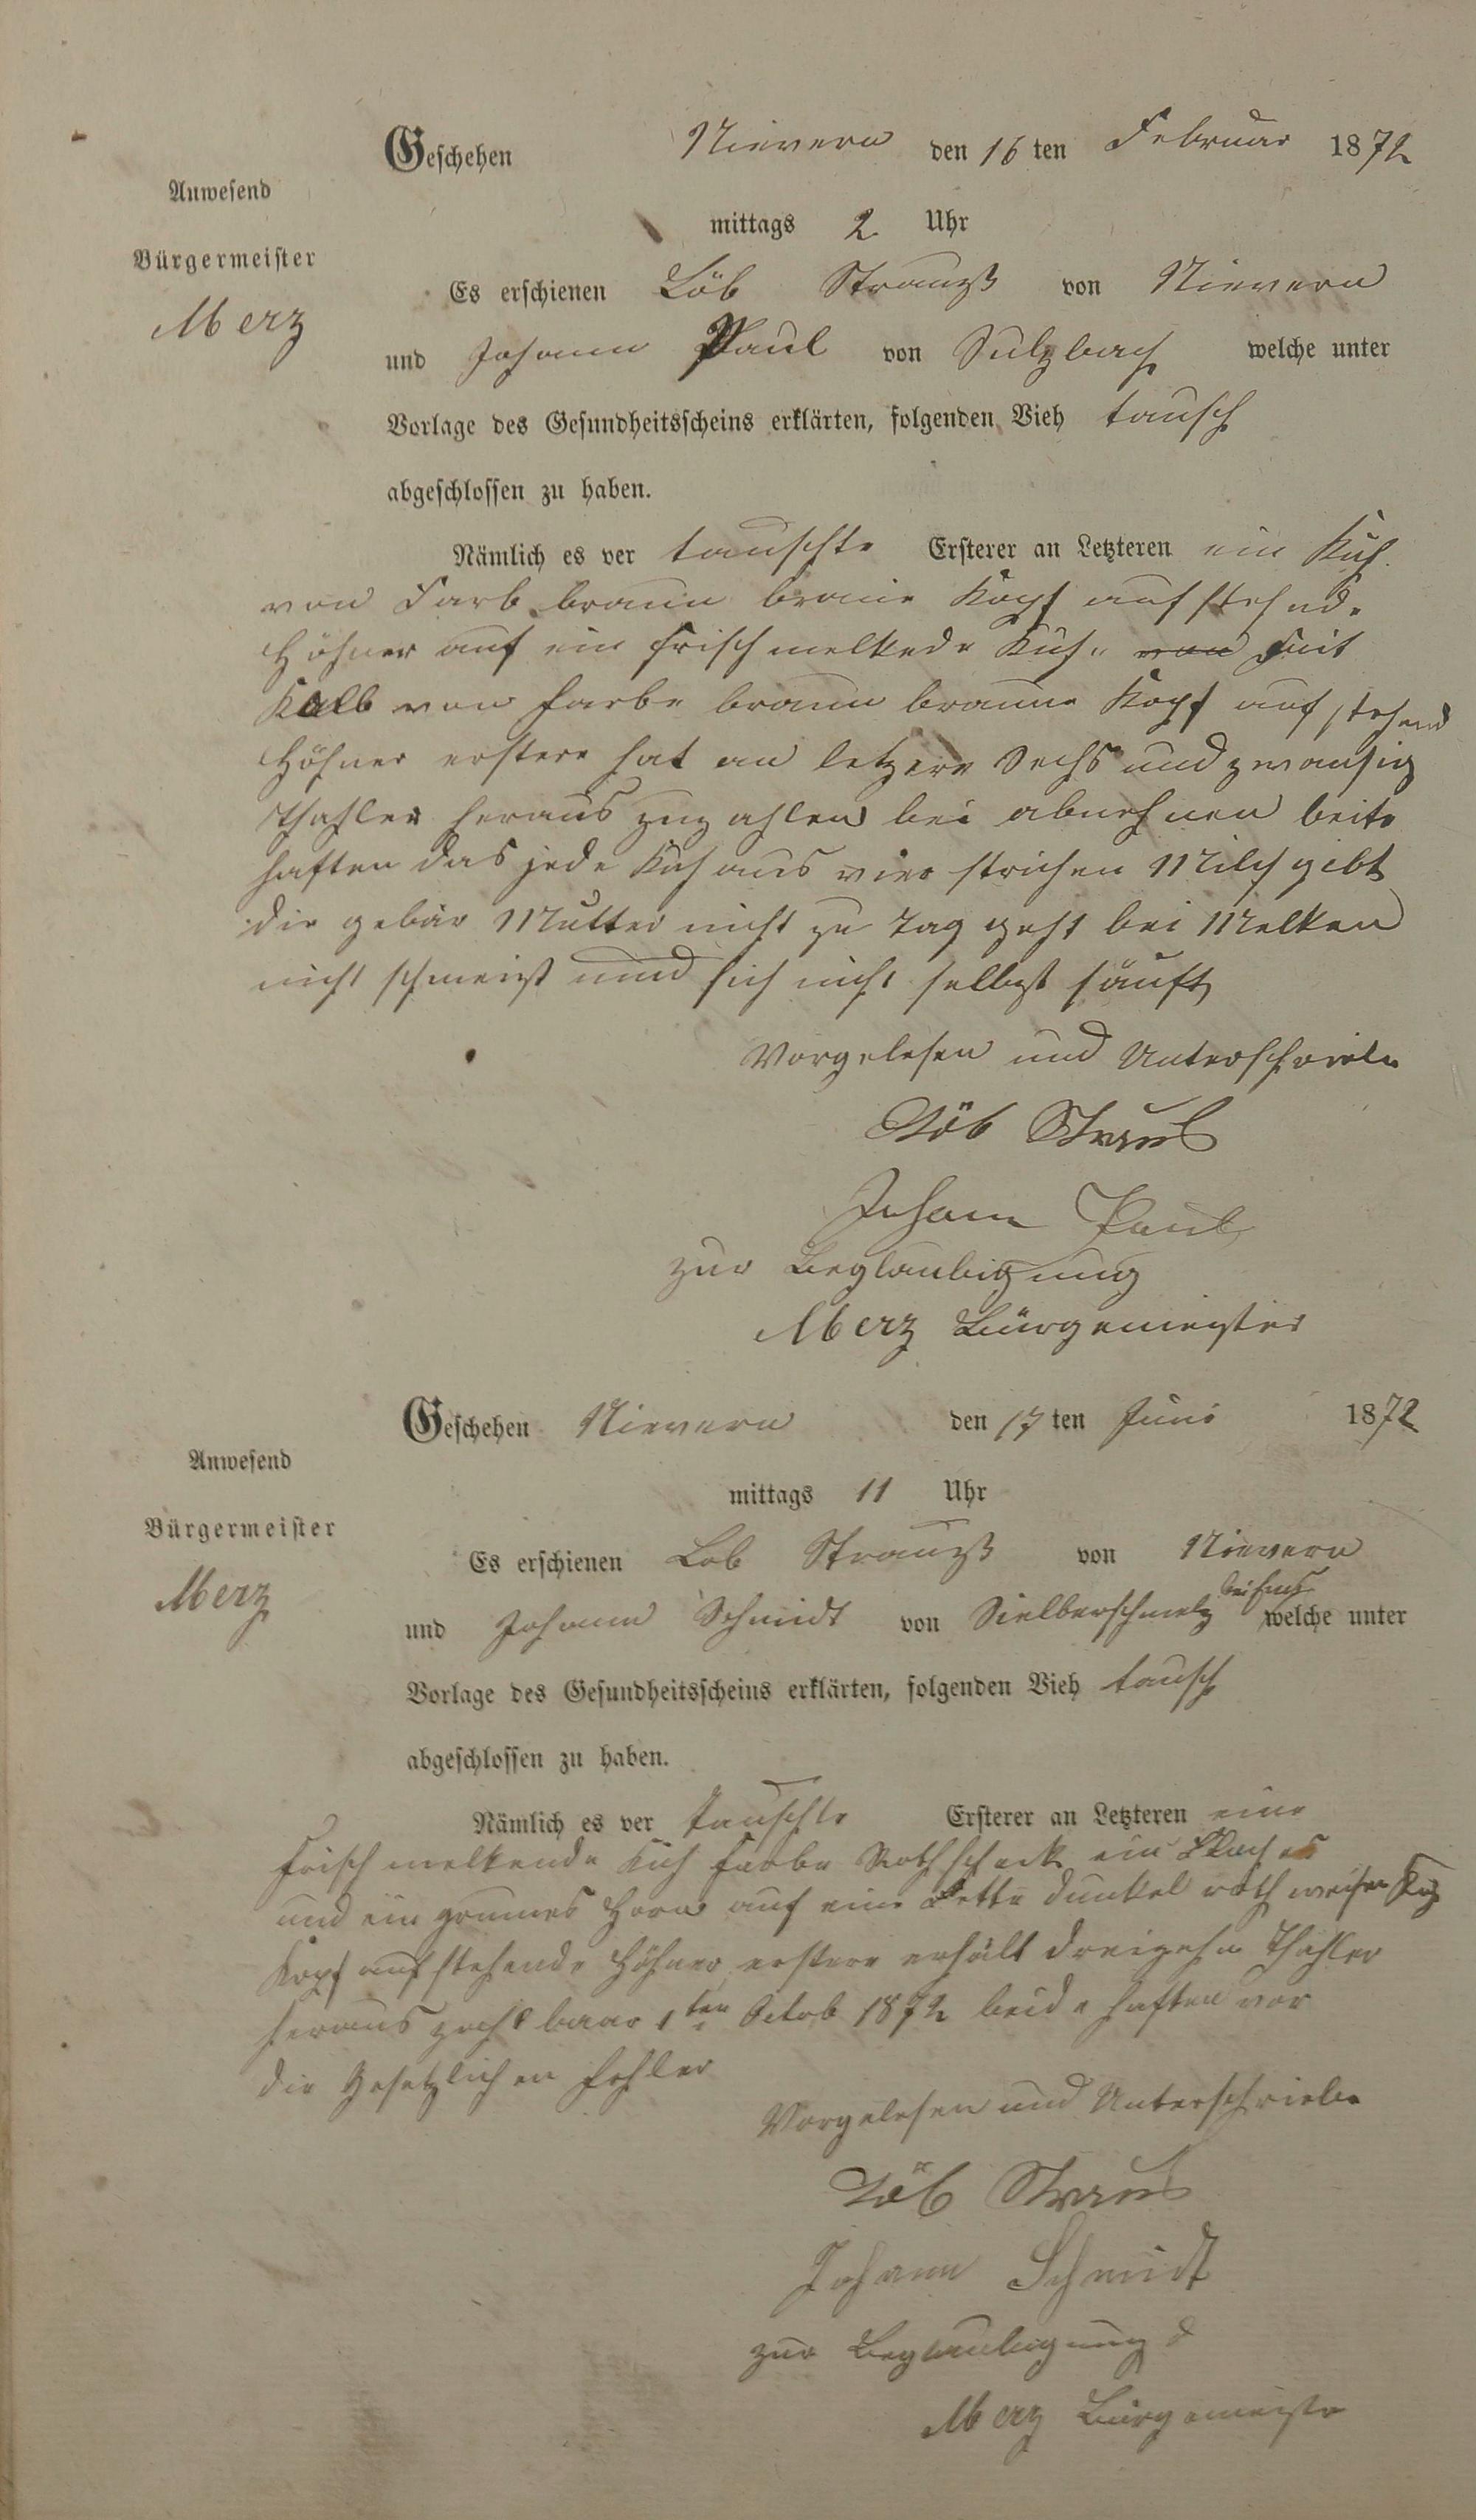 Geschehen Nievern den 16 ten Februar 1872
Anwesend
mittags 2 Uhr
Bürgermeister
Es erschienen Löb Strauß von Nievern
Merz
und Johann Paul von Sulzbach welche unter
Vorlage des Gesundheitsscheins erklärten, folgenden Vieh tausch
abgeschlossen zu haben.
Nämlich es ver tauschte Ersterer an Letzteren ein Kuh
von Farb braun braune Kopf aufstehnde
Höhner auf ein frisch melkede Kuh von mit
Kalb von Farbe braun braune Kopf auf stehend
Höhner erstere hat an letzere Sechs und zwanzig
Thahler heraus zuzahlen bei abnehmen beite
haften das jede Kuh aus vier strichen Milch gibt
die gebär Mutter nicht zu Tag geht bei Melken
nicht schmeist und sich nicht selbst säuft
Vorgelesen und Unterschrieben
Löb Straus
Johann Paul
zur Beglaubigung
Merz Bürgemeister
Geschehen Nievern den 17 ten Juni 1872
Anwesend
mittags 11 Uhr
Bürgermeister
Es erschienen Löb Strauß von Nievern
Merz
bei Ems
und Johann Schmidt von Sielberschmelz welche unter
Vorlage des Gesundheitsscheins erklärten, folgenden Vieh tausch
abgeschlossen zu haben.
Nämlich es ver tauschte Ersterer an Letzteren eine
frisch melkende Kuh Farbe Rothscheck ein
und ein Horn auf eine Fette dunkel roth weisen
Kopf aufstehende Höhner erstere erhält dreizehn Thahler
heraus zahlbaar 1ten Octob 1872 beide haften vor
die Gesetzlichen Fehler
Vorgelesen und Unterschrieben
Löb Straus
Johann Schmidt
zur Beglaubigung
Merz Bürgemeister